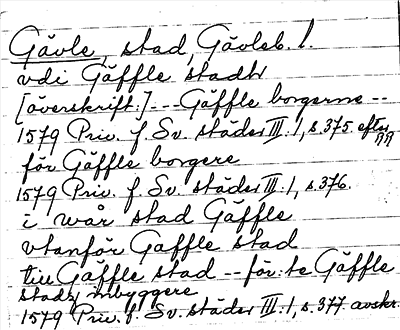 Gävle, stad, Gävleb. l.
vdi Gäffle stadh
[överskrift.] -- Gäffle borgerne --
1579 Priv. f. Sv. städer III.1, s.375. efter
för Gäffle borgere
1579 Priv. f. Sv. städer III.1, s.376.
i wår stad Gäffle
vtanför Gäffle stad
till Gäffle stad -- för:te Gäffle
stads inbyggere
1579 Priv. f. Sv. städer III.1, s.377. avskr.